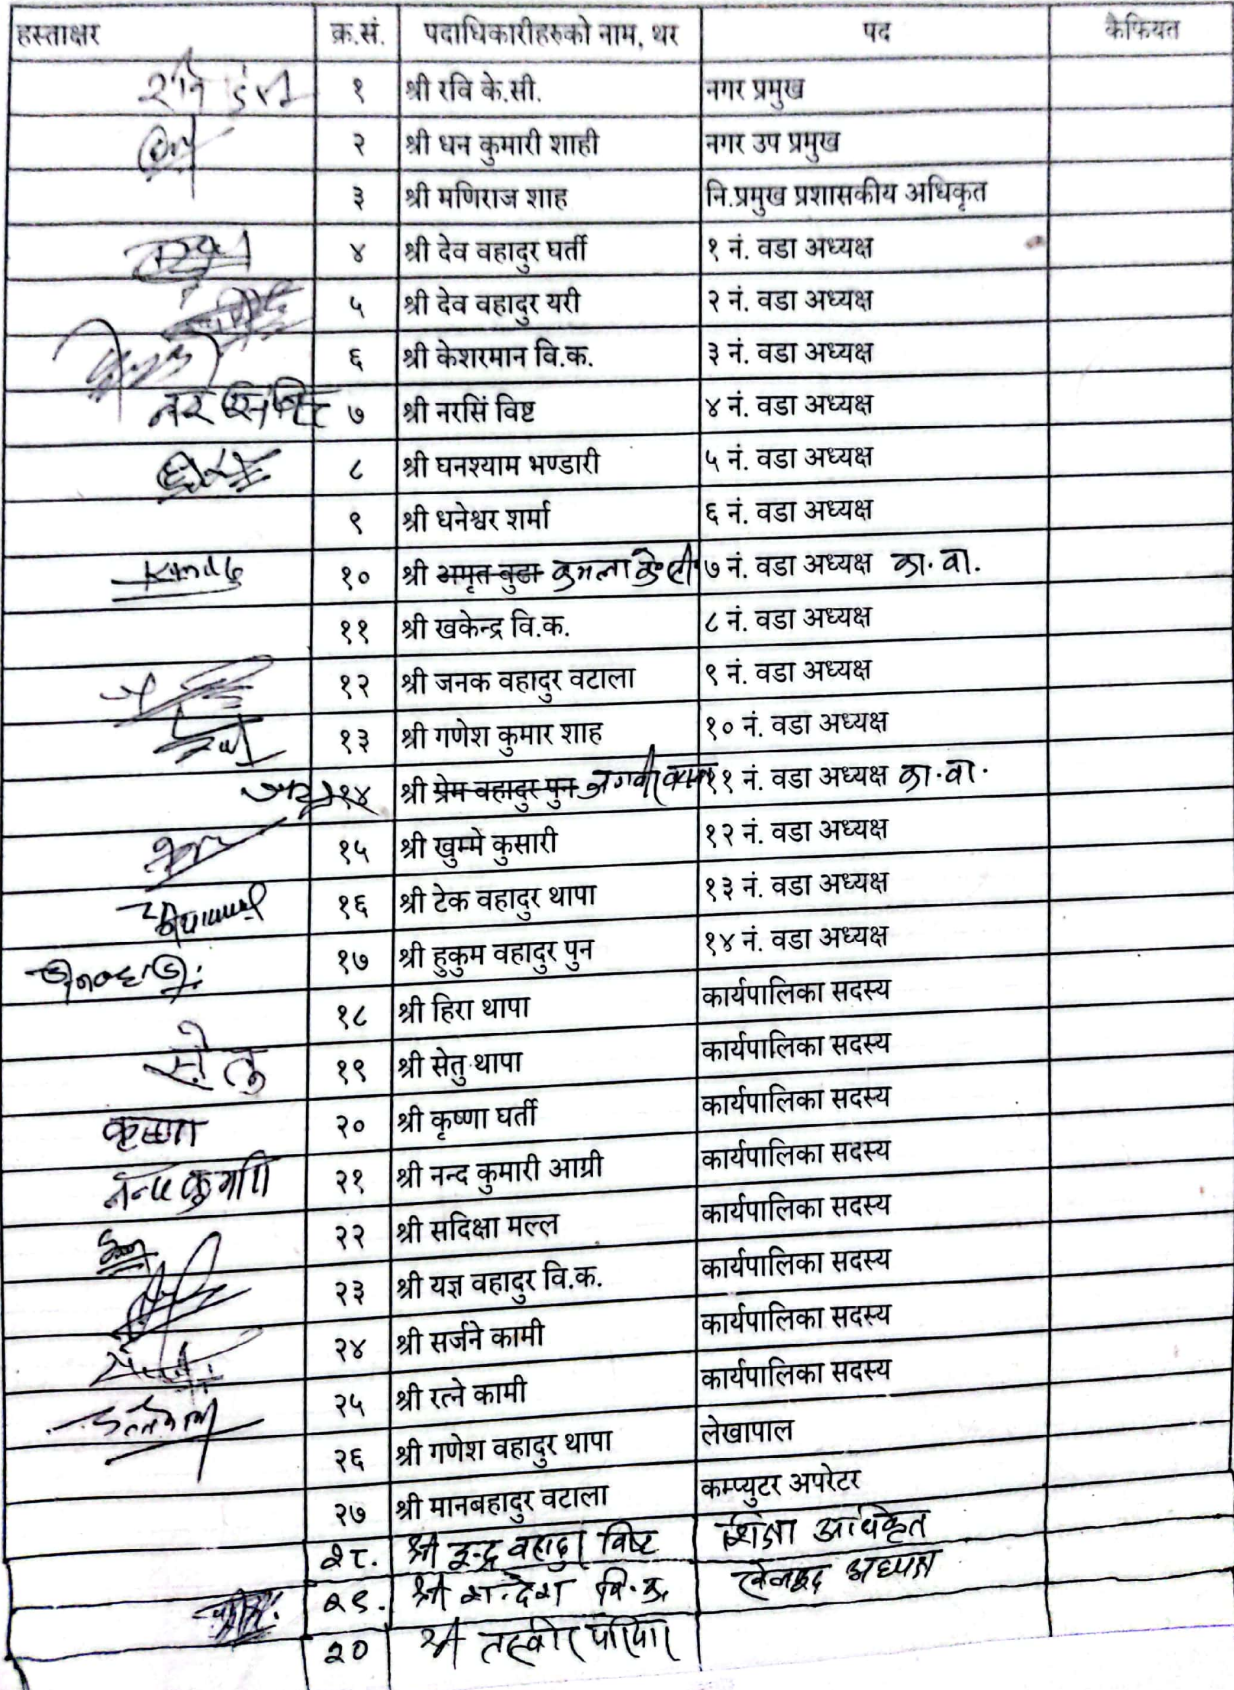 हस्ताक्षर क्र.सं. पदाधिकारीहरुको नाम, थर पद कैफियत
१ श्री रवि के.सी. नगर प्रमुख
२ श्री धन कुमारी शाही नगर उप प्रमुख
३ श्री मणिराज शाह नि.प्रमुख प्रशासकीय अधिकृत
४ श्री देव वहादुर घर्ती १ नं. वडा अध्यक्ष
५ श्री देव वहादुर यरी २ नं. वडा अध्यक्ष
६ श्री केशरमान वि.क. ३ नं. वडा अध्यक्ष
७ श्री नरसिं विष्ट ४ नं. वडा अध्यक्ष
८ श्री घनश्याम भण्डारी ५ नं. वडा अध्यक्ष
९ श्री धनेश्वर शर्मा ६ नं. वडा अध्यक्ष
१० श्री अमृत वुढा कमला के.सी. ७ नं. वडा अध्यक्ष का.वा.
११ श्री खकेन्द्र वि.क. ८ नं. वडा अध्यक्ष
१२ श्री जनक वहादुर वटाला ९ नं. वडा अध्यक्ष
१३ श्री गणेश कुमार शाह १० नं. वडा अध्यक्ष
१४ श्री प्रेम वहादुर पुन ११ नं. वडा अध्यक्ष का.वा.
१५ श्री खुम्मे कुसारी १२ नं. वडा अध्यक्ष
१६ श्री टेक वहादुर थापा १३ नं. वडा अध्यक्ष
१७ श्री हुकुम वहादुर पुन १४ नं. वडा अध्यक्ष
१८ श्री हिरा थापा कार्यपालिका सदस्य
सेतु १९ श्री सेतु थापा कार्यपालिका सदस्य
कृष्णा २० श्री कृष्णा घर्ती कार्यपालिका सदस्य
नन्दकुमारी २१ श्री नन्द कुमारी आग्री कार्यपालिका सदस्य
२२ श्री सदिक्षा मल्ल कार्यपालिका सदस्य
२३ श्री यज्ञ वहादुर वि.क. कार्यपालिका सदस्य
२४ श्री सर्जने कामी कार्यपालिका सदस्य
२५ श्री रत्ने कामी कार्यपालिका सदस्य
२६ श्री गणेश वहादुर थापा लेखापाल
२७ श्री मानबहादुर वटाला कम्प्युटर अपरेटर
२८. श्री इन्द्र वहादुर विष्ट शिक्षा अधिकृत
२९. श्री सन्देश वि.क. खेलकुद अध्यक्ष
३० श्री तस्वीर परियार